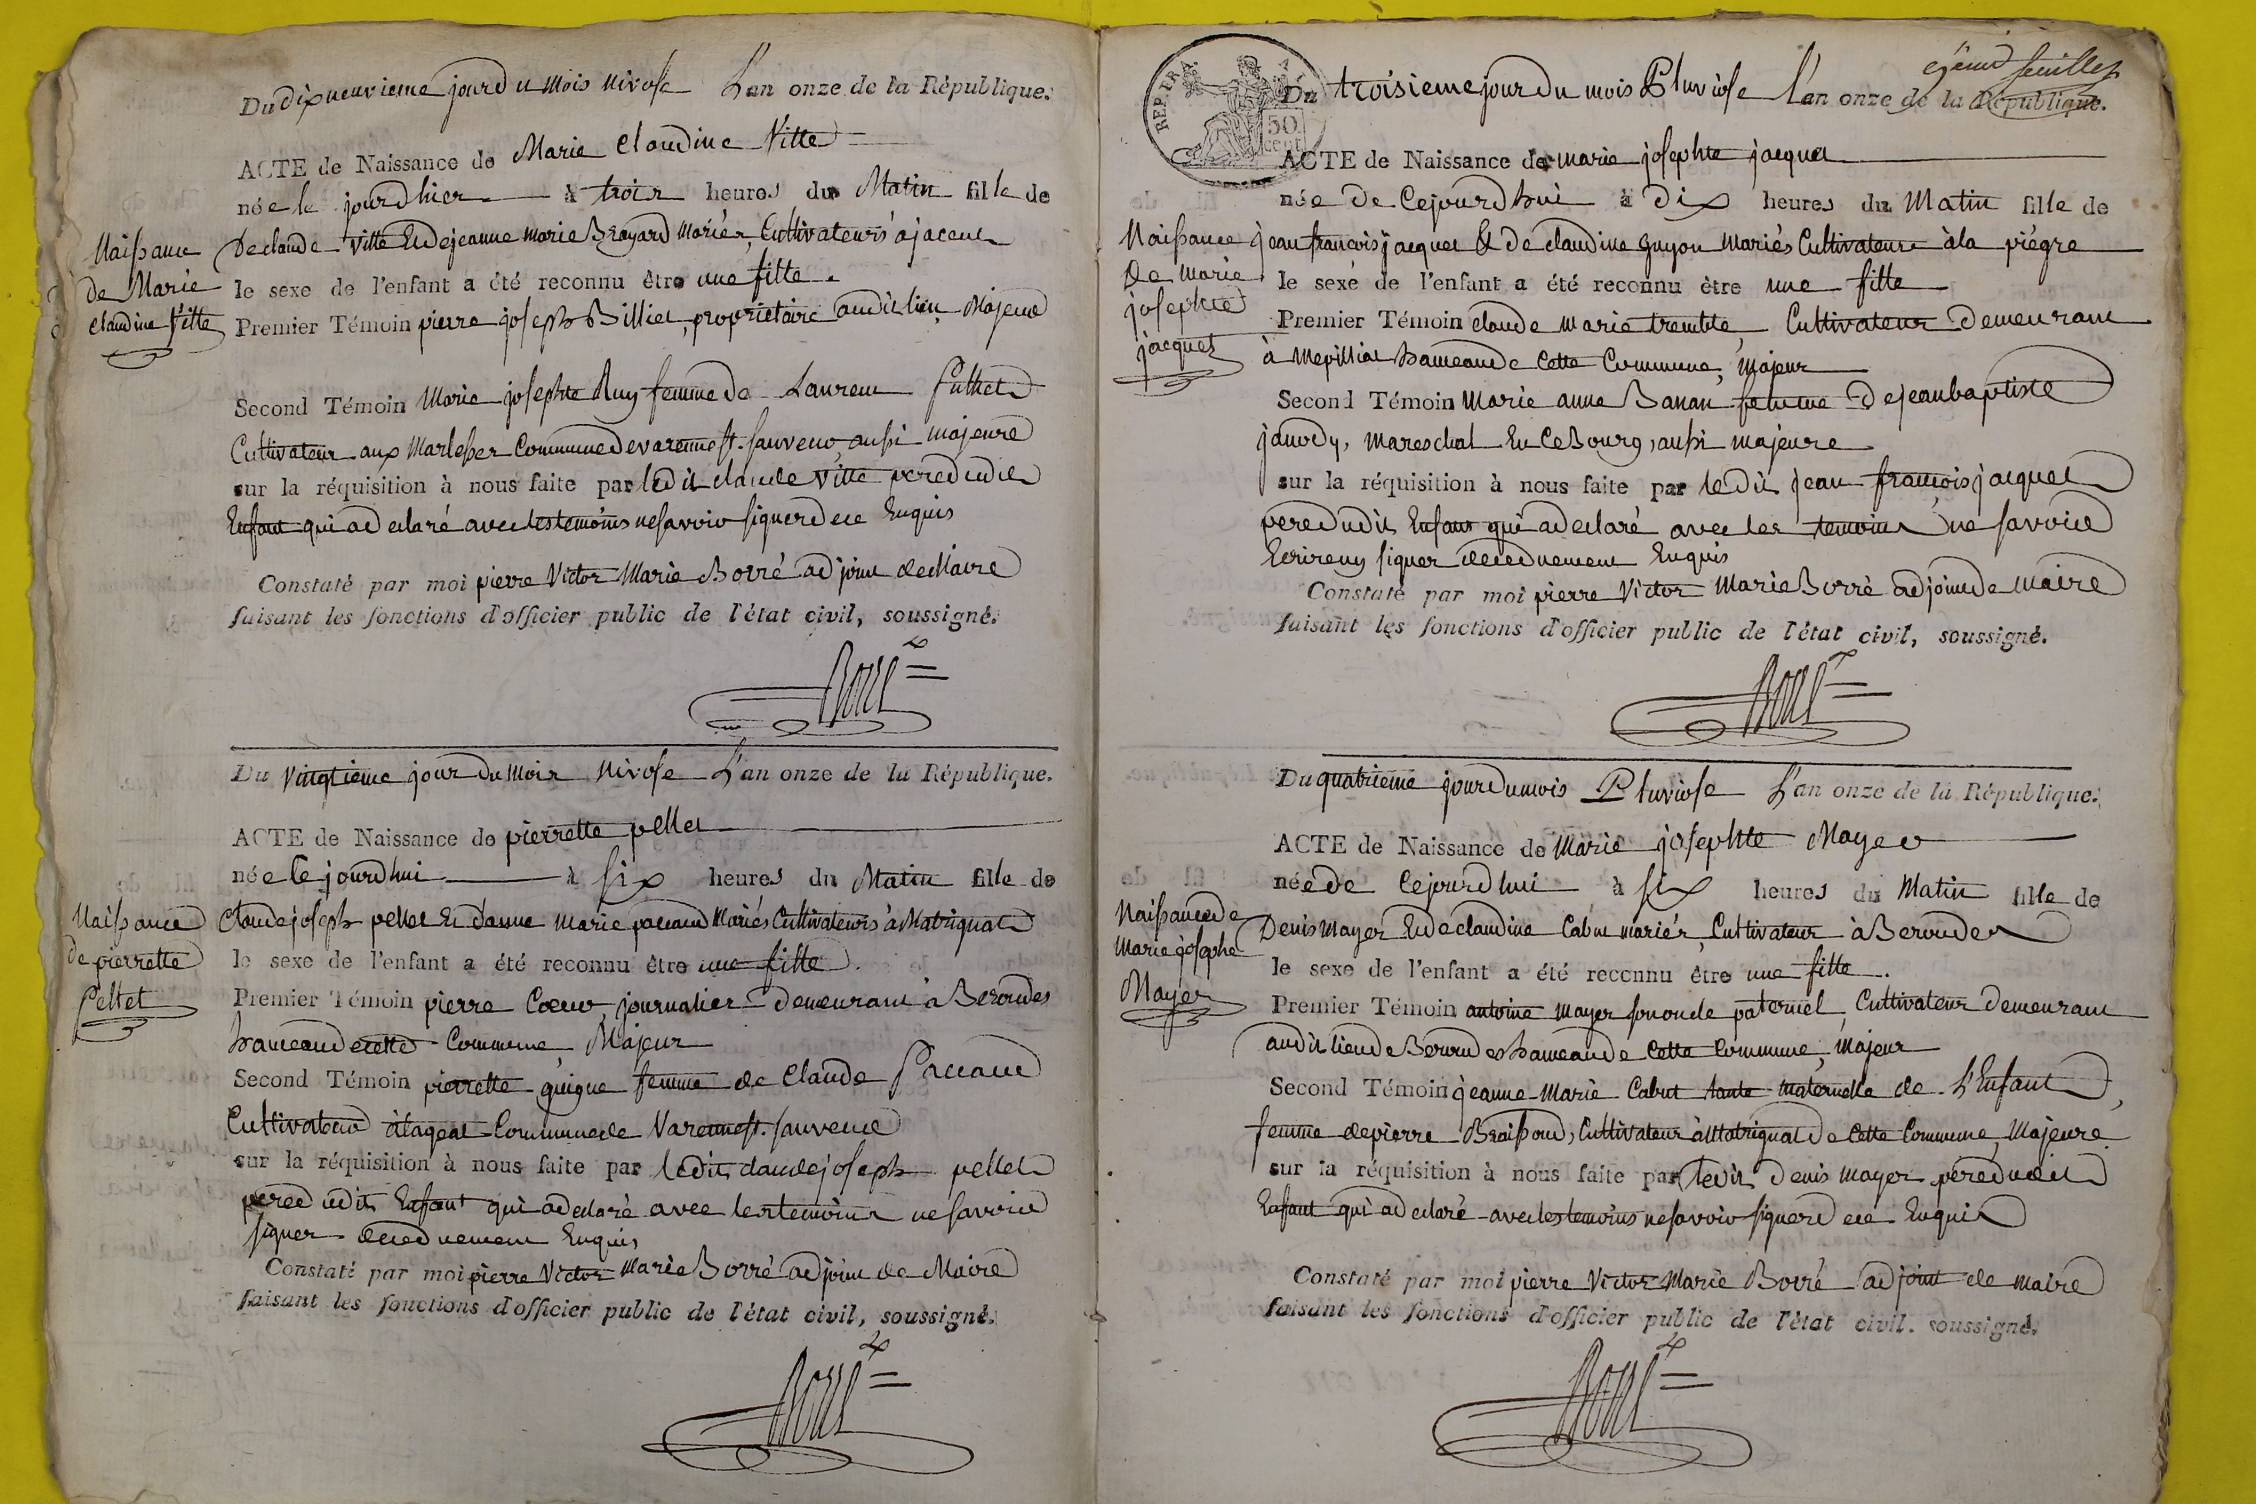 Du dixneuvieme jour du mois nivose L'an onze de la République.
ACTE de Naissance de Marie Claudine Vitte
née le jourdhier à trois heures du Matin fille de
De claude Vitte Et de jeanne marie Brayard Mariés, Cultivateurs à jaceux
le sexe de l'enfant a été reconnu être une fille.
Premier Témoin pierre joseph Billiet, proprietaire audit lieu, Majeur
Second Témoin Marie josephte Ruy femme de Laurent Puthet
Cultivateur aux Marlesses Commune de varenne st. sauveur, aussi majeure
sur la réquisition à nous faite par ledit claude Vitte pere dudit
Enfant qui a déclaré avec les temoins ne savoir signer de ce Enquis
Constaté par moi pierre Victor Marie Borré adjoint de Maire
faisant les fonctions d'officier public de l'état civil, soussigné.
Borré
Naissance
de Marie
claudine Vitte
Du vingtieme jour du mois Nivose L'an onze de la République.
ACTE de Naissance de pierrette pellet
née Cejourdhui à six heures du Matin fille de
Claude joseph pellet Et d'anne marie paccaud Mariés Cultivateurs à Matrignat
le sexe de l'enfant a été reconnu être une fille.
Premier Témoin pierre Cœur, journalier demeurant à Beroudes
hameau de cette Commune, Majeur
Second Témoin pierrette guigue femme de Claude Paccaud
Cultivateur Commune de Varenne st. sauveur
sur la réquisition à nous faite par ledit claude joseph pellet
pere dudit Enfant qui a déclaré avec les temoins ne savoir
signer de ce duement Enquis
Constaté par moi pierre Victor Marie Borré adjoint de Maire
faisant les fonctions d'officier public de l'état civil, soussigné.
Borré
Naissance
de pierrette
Pellet
feuillet
REP. FRA.
50
cent
Du troisieme jour du mois Pluviose l'an onze de la République.
ACTE de Naissance de marie josephte jacquet
née de Cejourdhui à dix heures du Matin fille de
jean francois jacquet Et de claudine guyon mariés Cultivateurs à la piégre
le sexe de l'enfant a été reconnu être une fille
Premier Témoin claude marie tremble, Cultivateur demeurant
à Mepilliat hameau de Cette Commune, majeur
Second Témoin Marie anne Banan femme de jean baptiste
janody, mareschal En ce Bourg, aussi majeure
sur la réquisition à nous faite par ledit jean françois jacquet
pere dudit Enfant qui a déclaré avec les temoins ne savoir
Ecrire ny signer de ce duement Enquis
Constaté par moi pierre Victor Marie Borré adjoint de maire
faisant les fonctions d'officier public de l'état civil, soussigné.
Borré
Naissance
de marie
josephte
jacquet
Du quatrieme jour du mois Pluviose L'an onze de la République.
ACTE de Naissance de Marie josephte Mayer
née de Cejourdhui à six heures du Matin fille de
Denis Mayer Et de claudine Cabut mariés, Cultivateur à Beroudes
le sexe de l'enfant a été reconnu être une fille.
Premier Témoin antoine mayer son oncle paternel, Cultivateur demeurant
audit lieu de Beroudes hameau de cette Commune, majeur
Second Témoin jeanne Marie Cabut tante maternelle de L'Enfant,
femme de pierre Cultivateur à Matrignat de Cette Commune, Majeure
sur la réquisition à nous faite par ledit Denis mayer pere dudit
Enfant qui a déclaré avec les temoins ne savoir signer de ce Enquis
Constaté par moi pierre Victor Marie Borré adjoint de maire
faisant les fonctions d'officier public de l'état civil. soussigné.
Borré
Naissance de
Marie josephe
Mayer